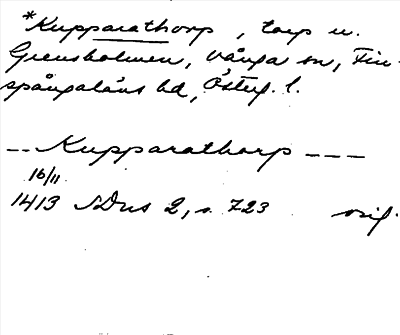 *Kupparathorp, torp u.
Grensholmen, Vånga sn, Fin-
spångaläns hd, Österg. l.
-- Kupparathorp ---
16/11
1413 SDns 2, s. 723 orig.